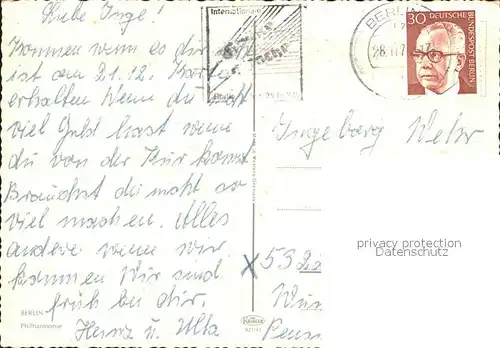 Liebe Inge!
Kommen wenn es dir
ist am 21.12. Karte
erhalten Wenn du nicht
viel Geld hast wenn
du von der Kur kommst
Brauchst du nicht so
viel machen. Alles
andere wenn wir
kommen Wir sind
früh bei dir.
Heinz u. Ulla
BERLIN
Philharmonie
Internationale
Grüne Woche
Berlin
BERLIN
30 DEUTSCHE BUNDESPOST BERLIN
Ingeborg Wehr
privacy protection
Datenschutz
532
Pens